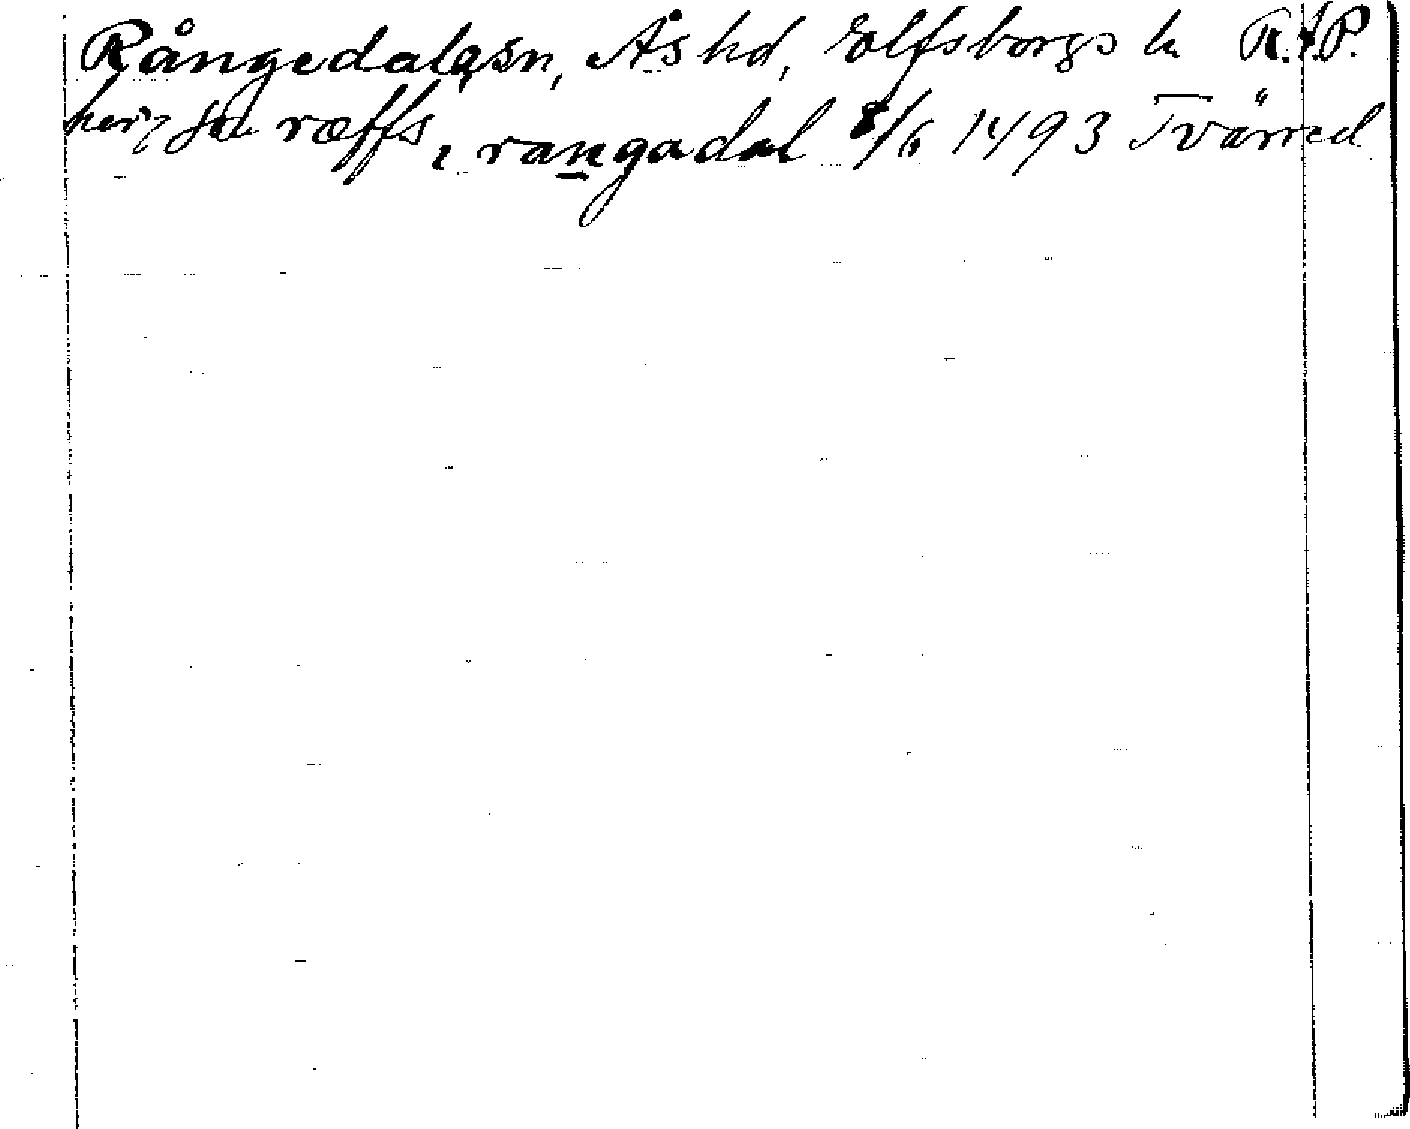 Rångedala sn, Ås hd, Elfsborgs l. R.A.P.
ræffs, rangadal 8/6 1493 Tvärred